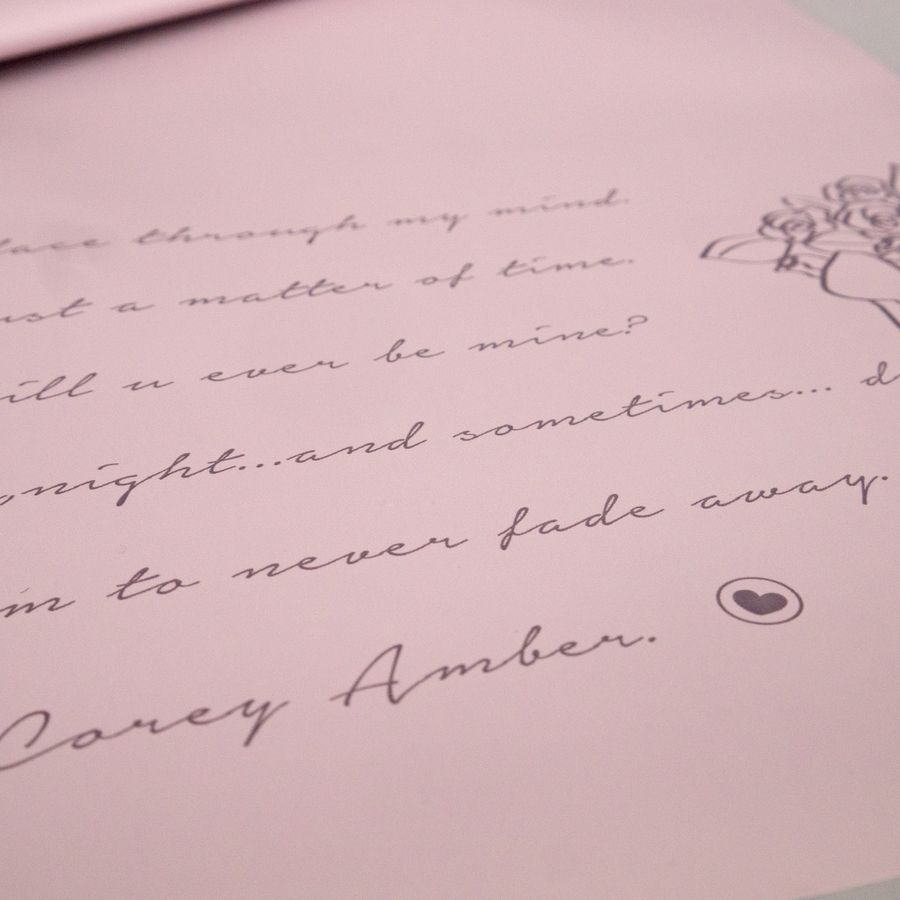 through my mind.
a matter of time.
u ever be mine?
and sometimes...
to never fade away.
Corey Amber.